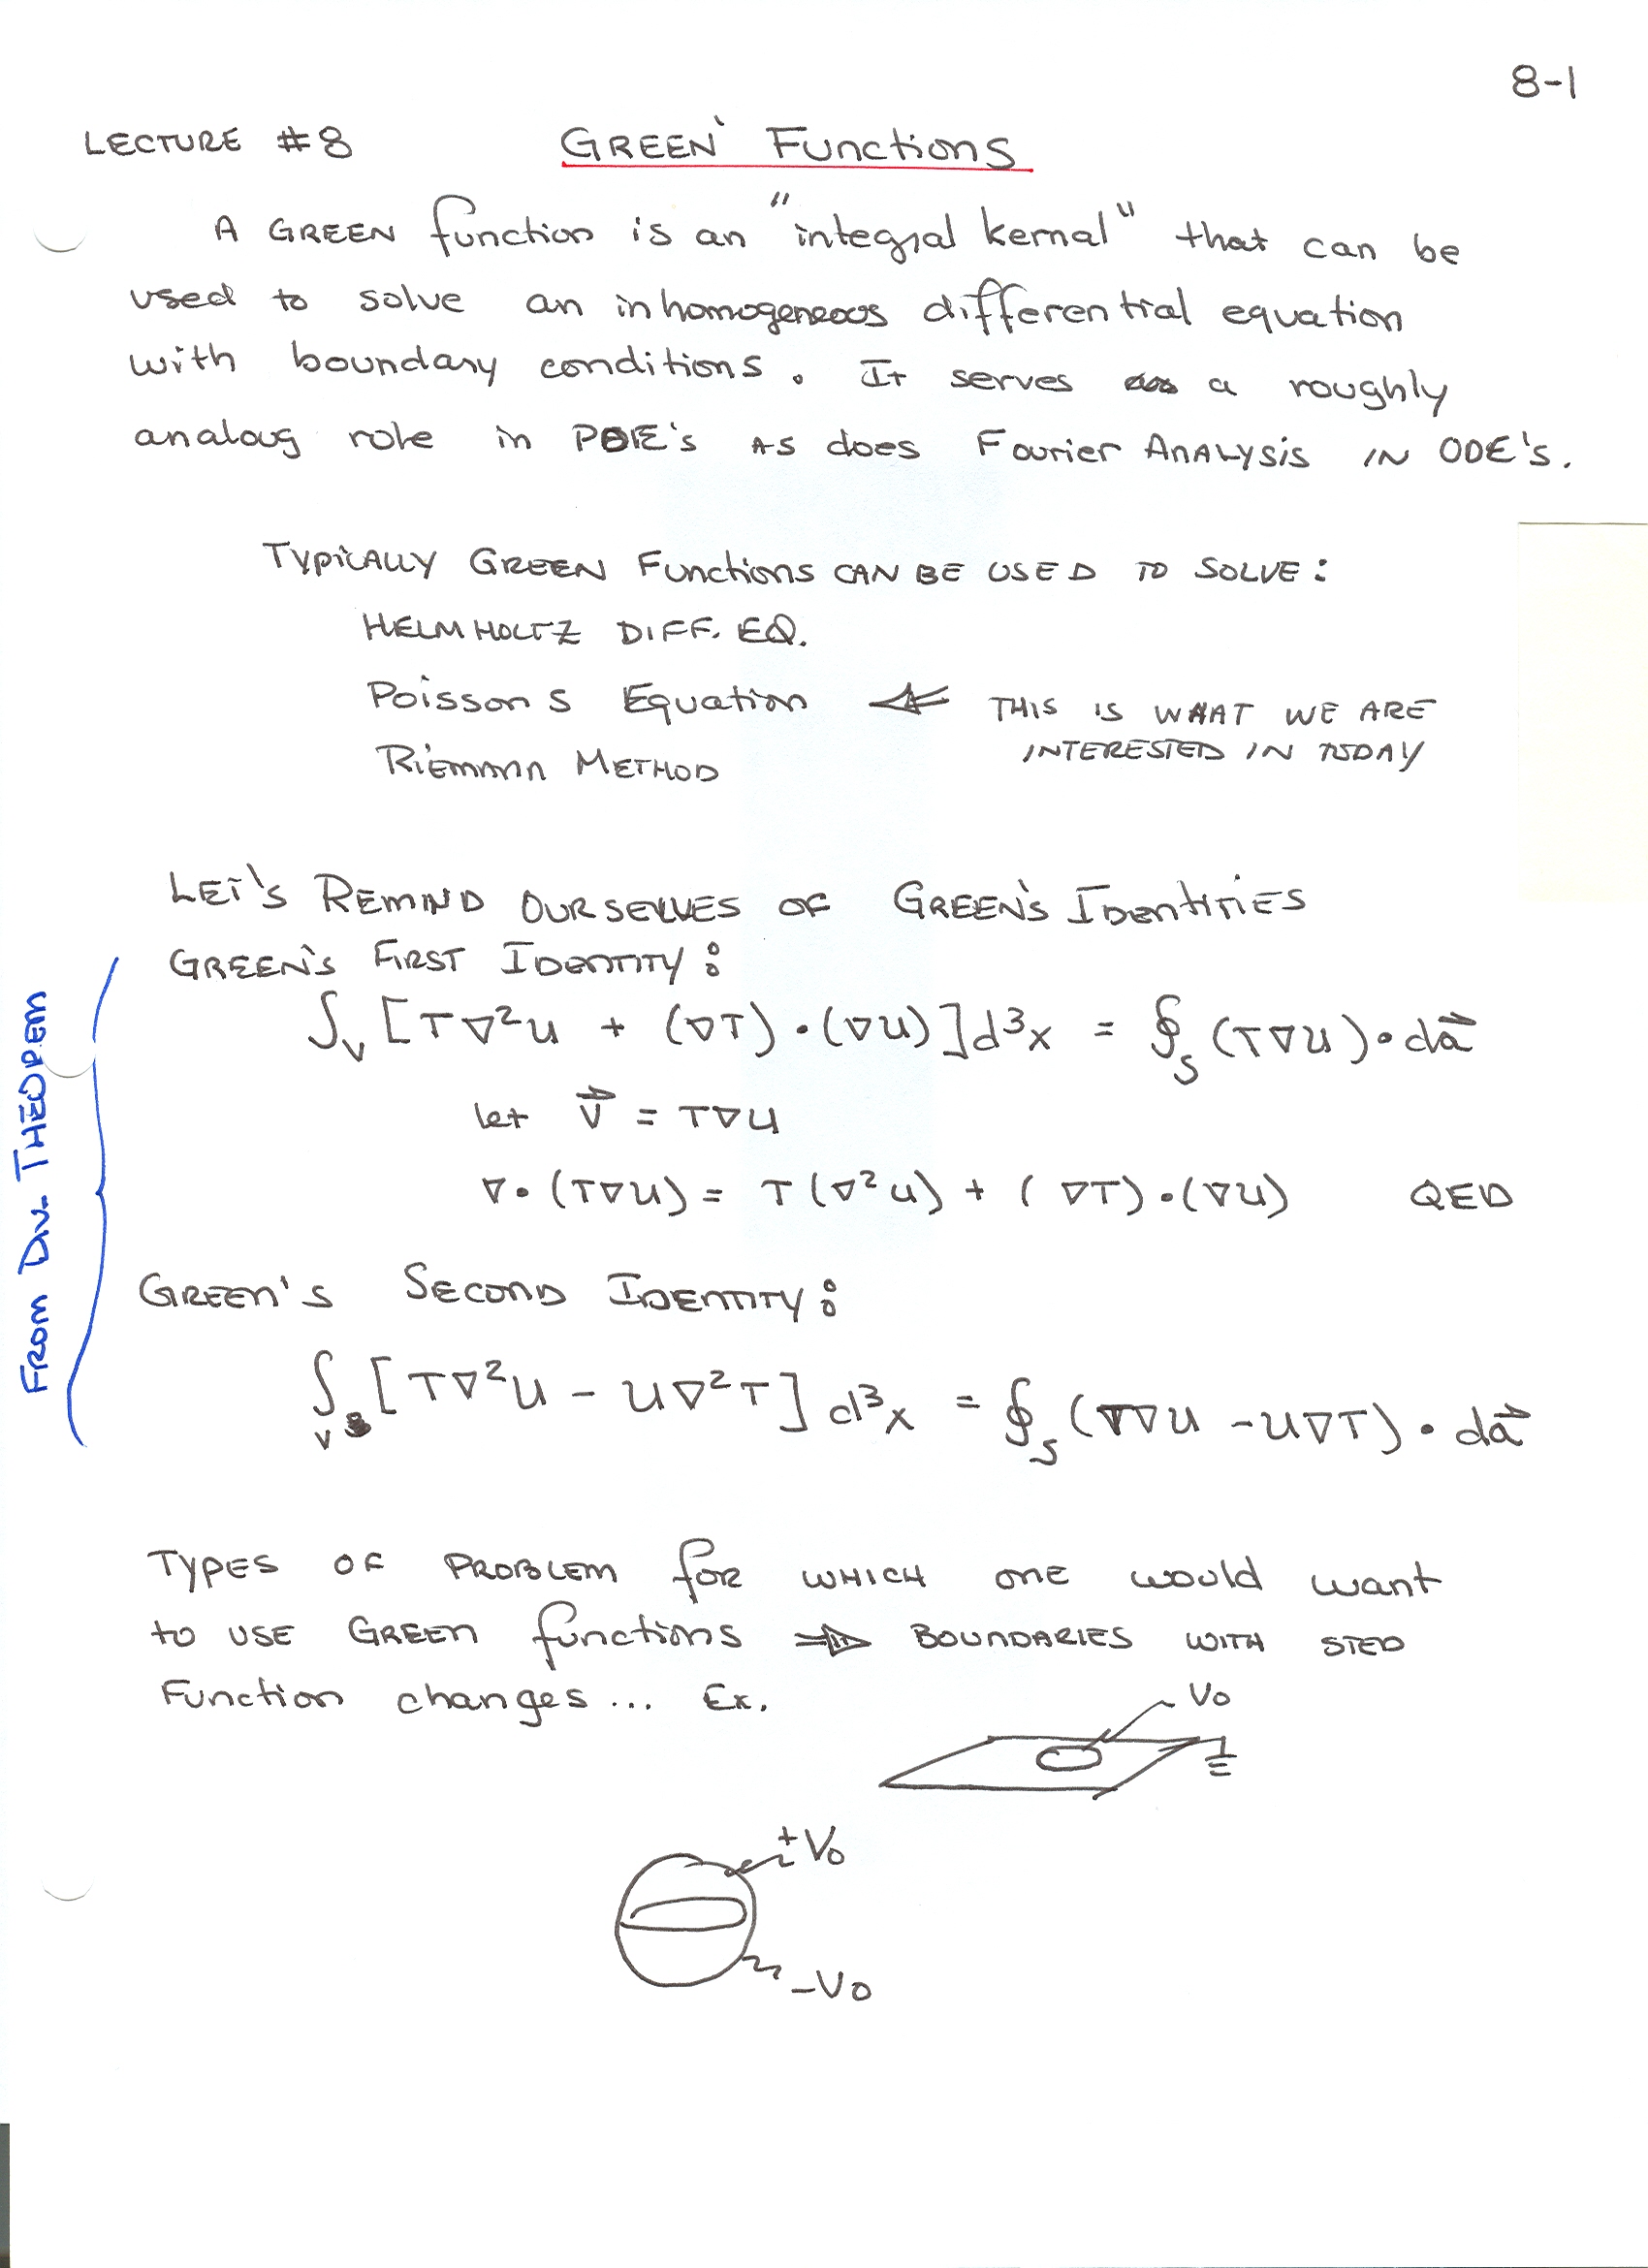 8-1
LECTURE #8 GREEN' Functions
A GREEN function is an "integral kernal" that can be
used to solve an inhomogeneous differential equation
with boundary conditions. It serves a roughly
analoug role in PDE's AS does Fourier Analysis IN ODE's.
TYPICALLY GREEN Functions CAN BE USED TO SOLVE:
HELMHOLTZ DIFF. EQ.
Poissons Equation ⇐ THIS IS WHAT WE ARE
INTERESTED IN TODAY
Riemann METHOD
LET'S REMIND OURSELVES OF GREEN'S IDENTITIES
GREEN'S FIRST IDENTITY:
∫_V [T∇²U + (∇T)·(∇U)]d³x = ∮_S (T∇U)·da⃗
let V⃗ = T∇U
∇·(T∇U) = T(∇²U) + (∇T)·(∇U) QED
GREEN'S SECOND IDENTITY:
∫_V [T∇²U - U∇²T] d³x = ∮_S (T∇U - U∇T)·da⃗
From Div. THEOREM
TYPES OF PROBLEM for WHICH ONE would want
to USE GREEN functions ⇒ BOUNDARIES WITH STED
Function changes... Ex.
V0
+V0
-V0